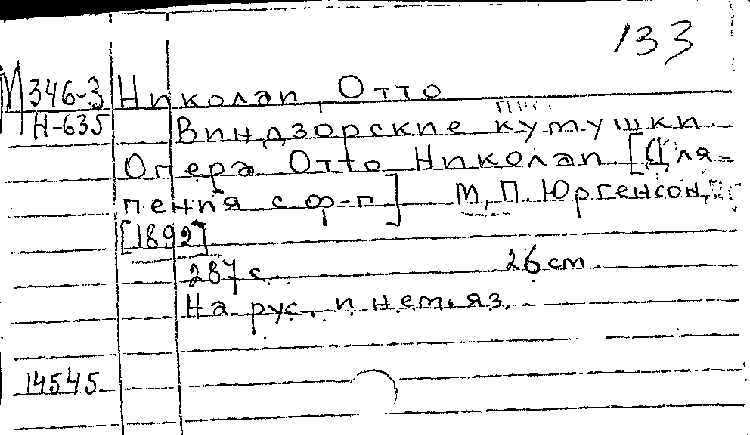 133
М346-3 Николаи, Отто
Н-635 Виндзорские кумушки.
Опера Отто Николаи [Для
пения с ф-п] М, П. Юргенсон,
[1892]
287 с. 26 cm.
На рус. и нем. яз.
14545